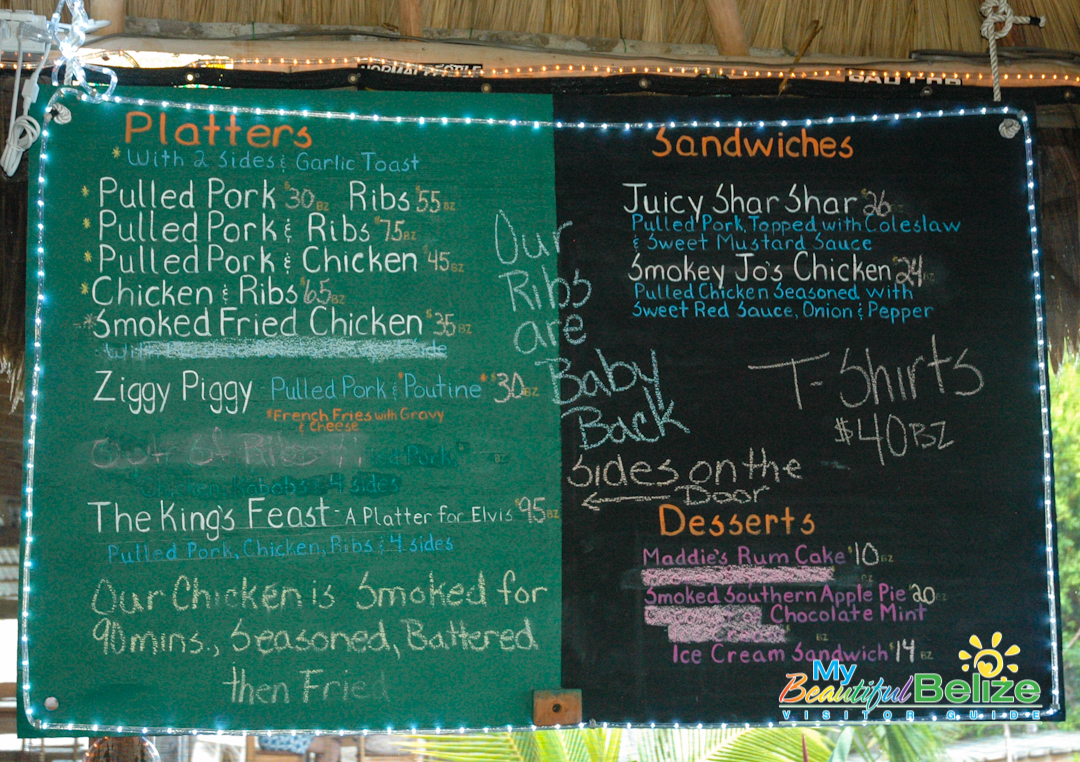 Platters
*With 2 Sides & Garlic Toast
* Pulled Pork $30 BZ Ribs $55 BZ
* Pulled Pork & Ribs $75 BZ
* Pulled Pork & Chicken $45 BZ
* Chicken & Ribs $65 BZ
* Smoked Fried Chicken $35 BZ
Ziggy Piggy - Pulled Pork & *Poutine* $30 BZ
*French Fries with Gravy
& Cheese
Out of Ribs
& 4 sides
The King's Feast - A Platter for Elvis $95 BZ
Pulled Pork, Chicken, Ribs & 4 sides
Our Chicken is Smoked for
90mins., Seasoned, Battered
then Fried
Our
Ribs
are
Baby
Back
Sandwiches
Juicy Shar Shar $26
Pulled Pork, Topped with Coleslaw
& Sweet Mustard Sauce
Smokey Jo's Chicken $24
Pulled Chicken Seasoned with
Sweet Red Sauce, Onion & Pepper
T-Shirts
$40BZ
Sides on the
Door
Desserts
Maddie's Rum Cake $10 BZ
Smoked Southern Apple Pie 20 BZ
Chocolate Mint
BZ
Ice Cream Sandwich $14 BZ
My
Beautiful Belize
VISITOR GUIDE